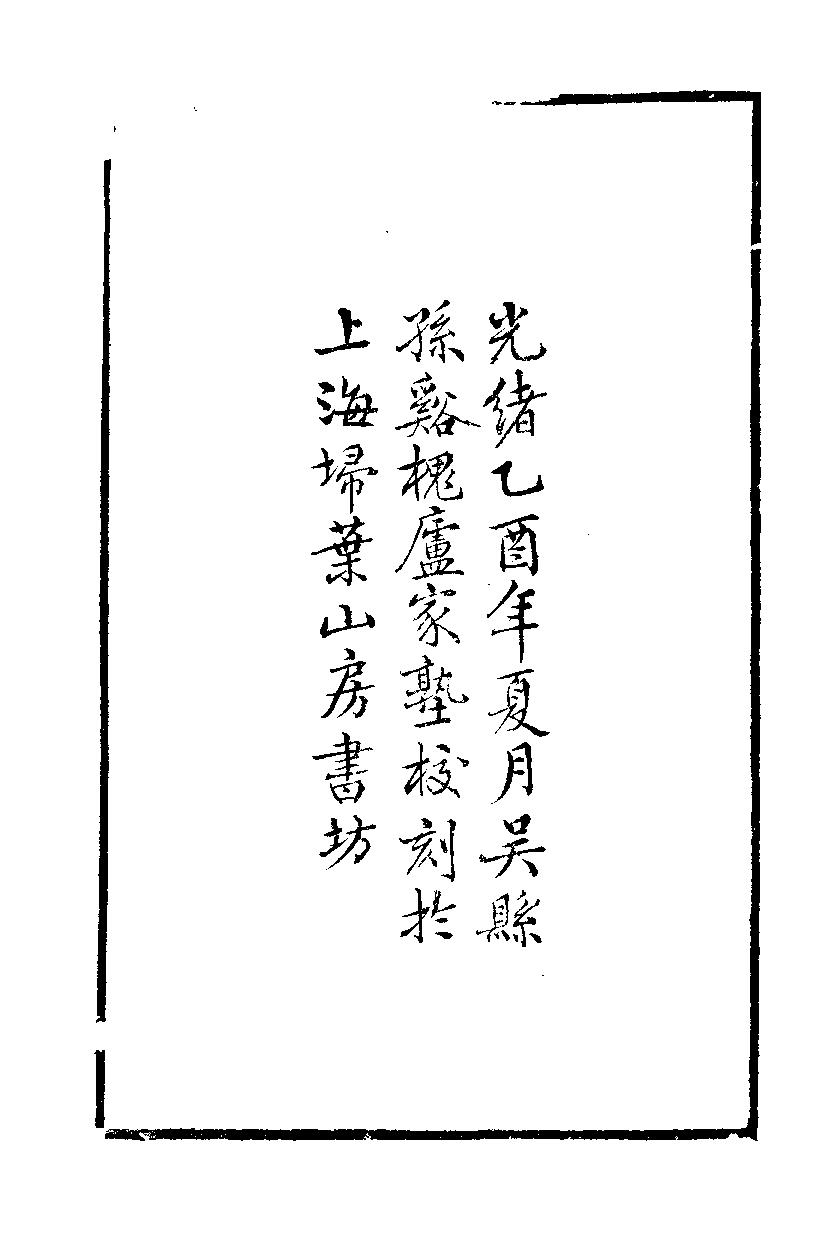 光緒乙酉年夏月吳縣
孫谿槐廬家塾校刻於
上海埽葉山房書坊